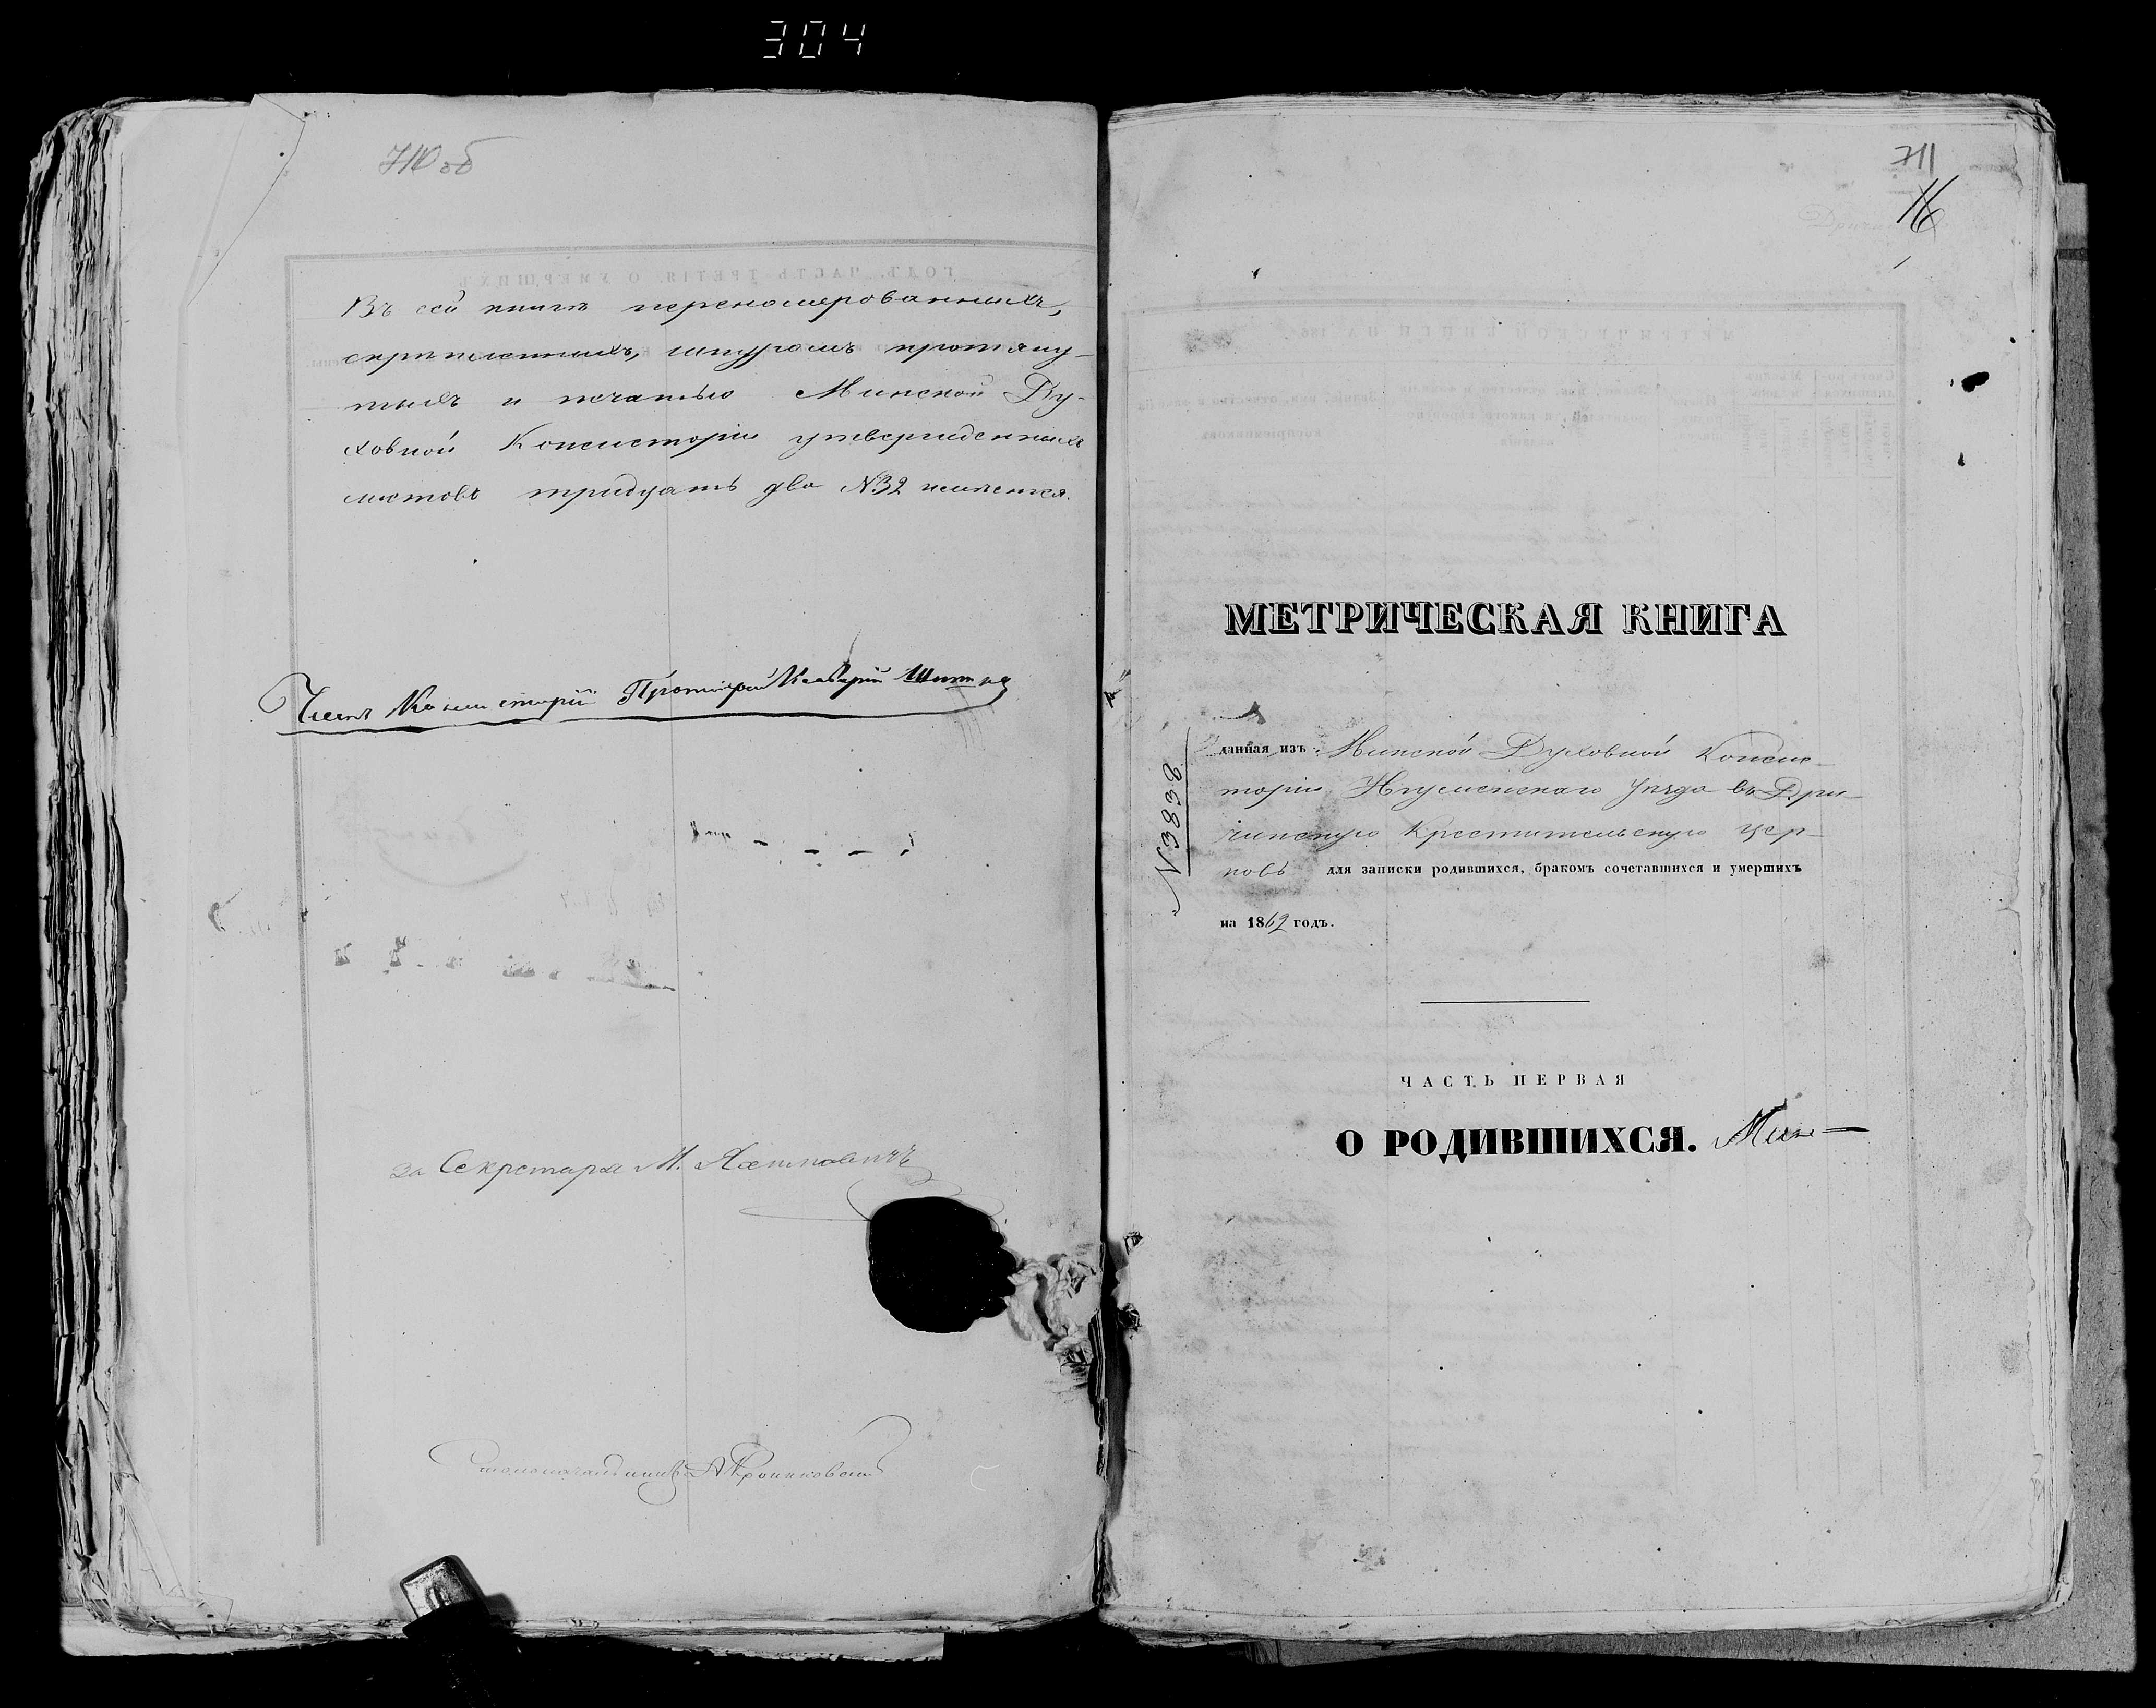 304
710 об
Въ сей книгѣ перенамерованныхъ,
скрѣпленныхъ, шнуромъ протяну-
тыхъ и печатью Минской Ду-
ховной Консисторіи утвержденныхъ
листовъ тридцать два №32 имѣется.
Членъ Консисторіи Протоіерей
За Секретаря М.
Столоначальникъ
711
16
МЕТРИЧЕСКАЯ КНИГА
№3838
данная изъ Минской Духовной Консис-
торіи Игуменскаго уѣзда въ Дри-
чинскую Крестительскую цер-
ковь для записки родившихся, бракомъ сочетавшихся и умершихъ
на 1862 годъ.
ЧАСТЬ ПЕРВАЯ
О РОДИВШИХСЯ.